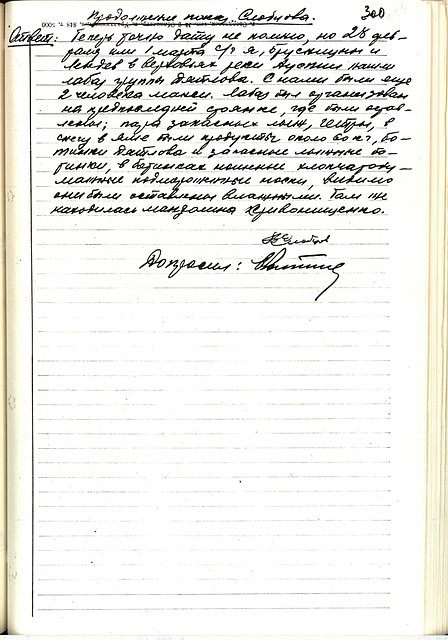 Продолжение показ. Слобцова. 300
Ответ: Теперь точно дату не помню, но 28 фев-
раля или 1 марта с/г я, Брусницын и
Лебедев в верховьях реки Ауспии нашли
лабаз группы Дятлова. С нами были еще
2 человека манси. Лабаз был организован
на предпоследней стоянке, где были остав-
лены: пара запасных лыж, гетры, в
снегу в яме были продукты около 60 кг, бо-
тинки Дятлова и запасные лыжные бо-
тинки, в ботинках ношенные хлопчатобу-
мажные носки, видимо
они были оставлены влажными. Там же
находилась мандолина Кривонищенко.
Слобцов
Допросил: